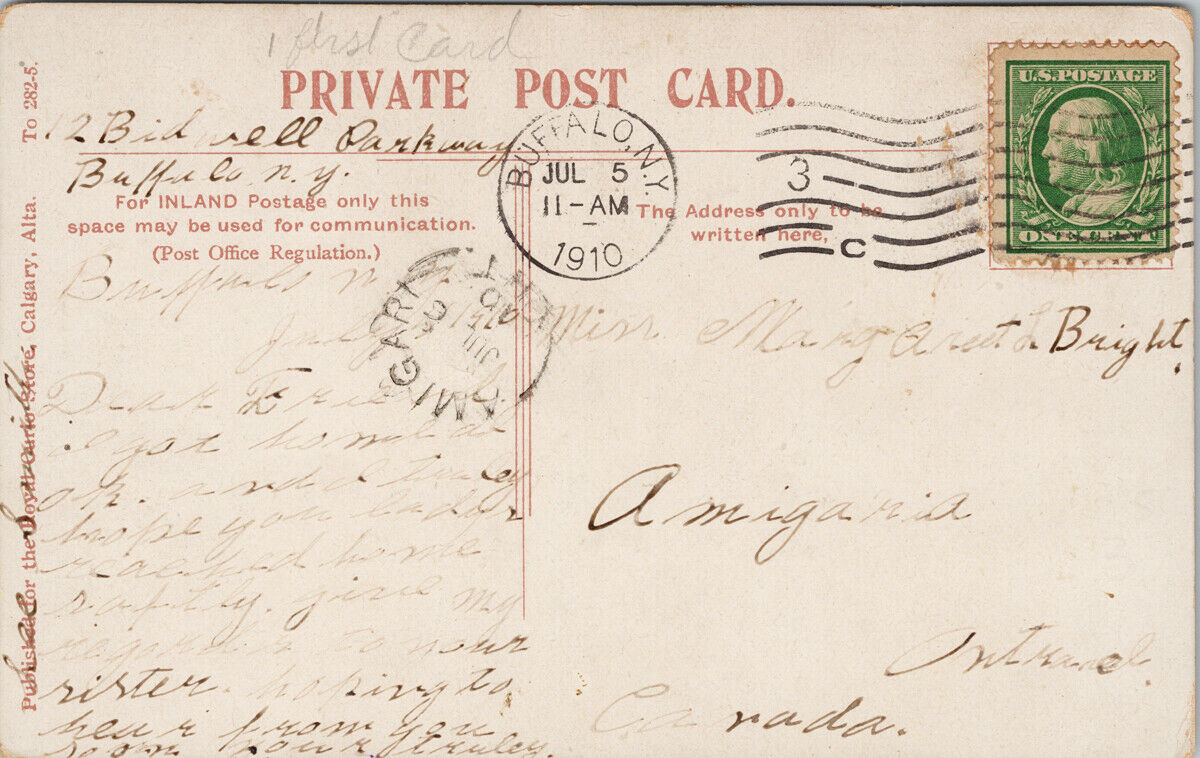 1 first Card
PRIVATE POST CARD.
12 Bidwell Parkway
Buffalo, n.y.
For INLAND Postage only this
space may be used for communication.
(Post Office Regulation.)
BUFFALO, N.Y.
JUL 5
11-AM
1910
3
C
U.S. POSTAGE
ONE CENT
The Address only to be
written here,
AMIGARI
JUL
Buffalo n.y.
July 1910
Dear Friend.
I got home all
ok. and I truley
hope you ladies
reached home
saftly. give my
regards to your
sister. hoping to
hear from you
soon your truley.
Miss Margaret L Bright
Amigaria
Canada.
Published for the Royal Curio Store, Calgary, Alta. To 282-5.